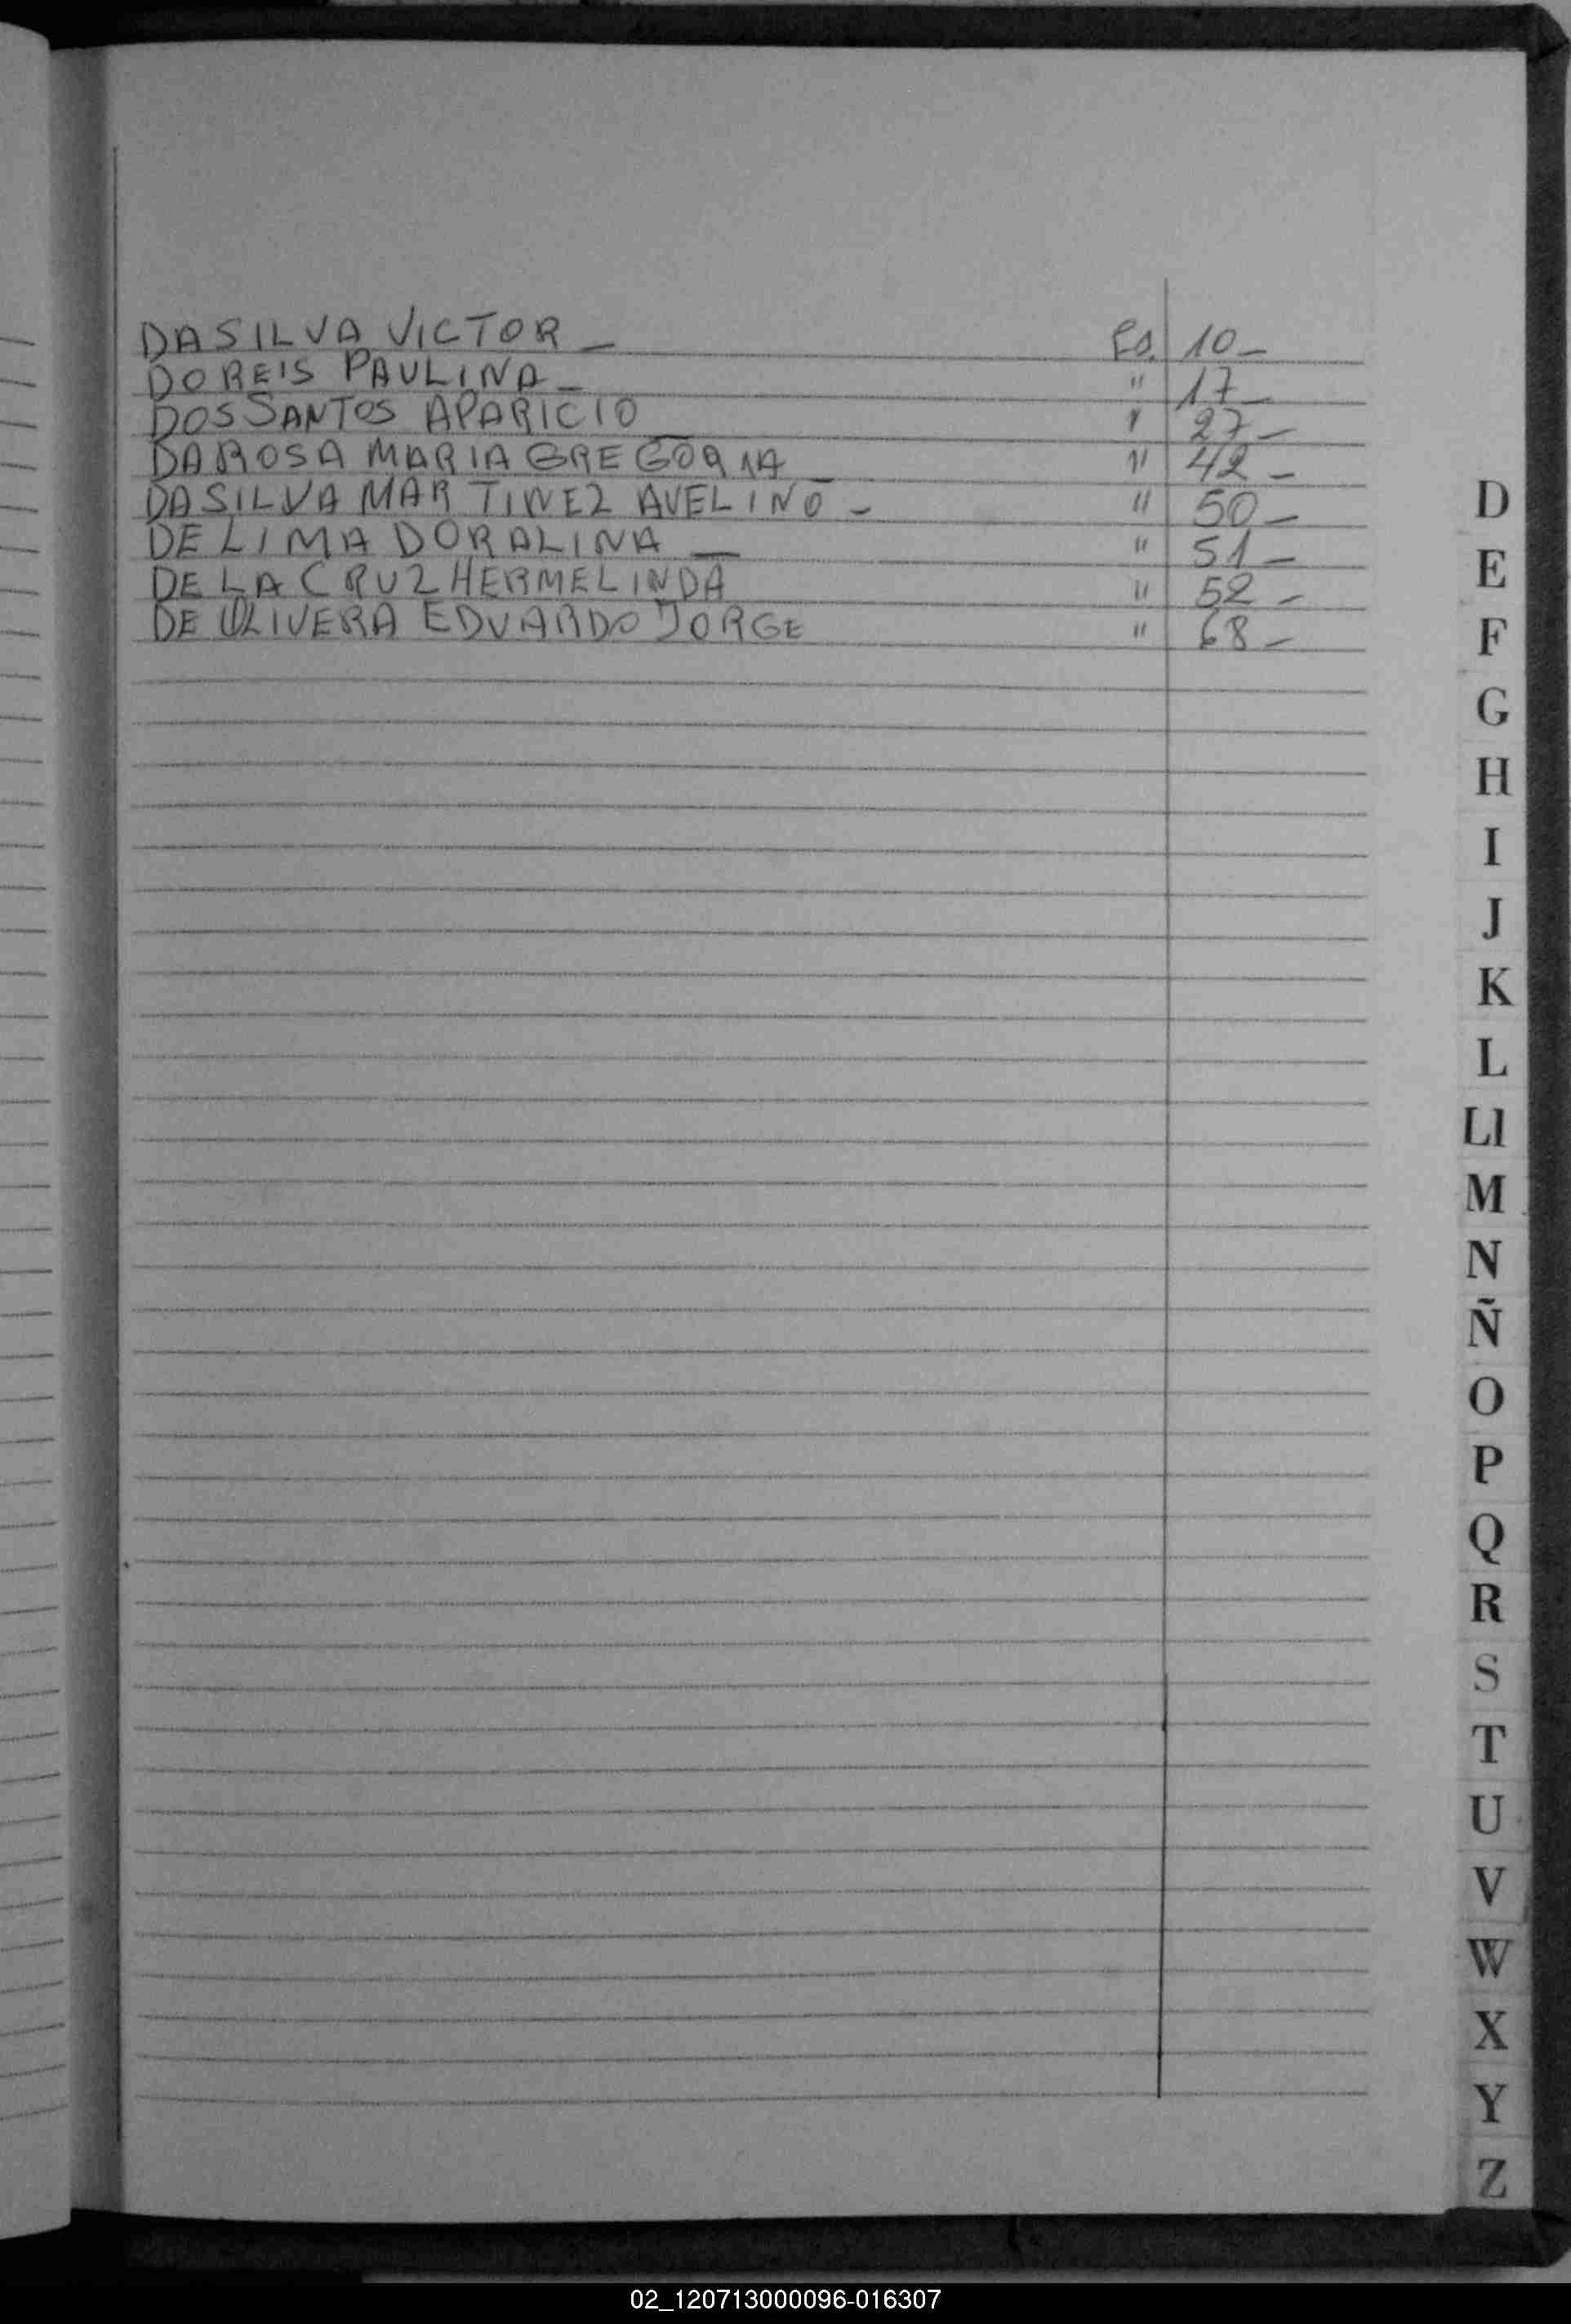 DASILVA VICTOR _ Fs. 10_
DOREIS PAULINA _ " 17_
DOS SANTOS APARICIO " 27_
DA ROSA MARIA GREGORIA " 42_
DASILVA MARTINEZ AVELINO _ " 50_
DE LIMA DORALINA _ " 51_
DE LA CRUZ HERMELINDA " 52_
DE OLIVERA EDUARDO JORGE " 68_
D
E
F
G
H
I
J
K
L
Ll
M
N
Ñ
O
P
Q
R
S
T
U
V
W
X
Y
Z
02_120713000096-016307